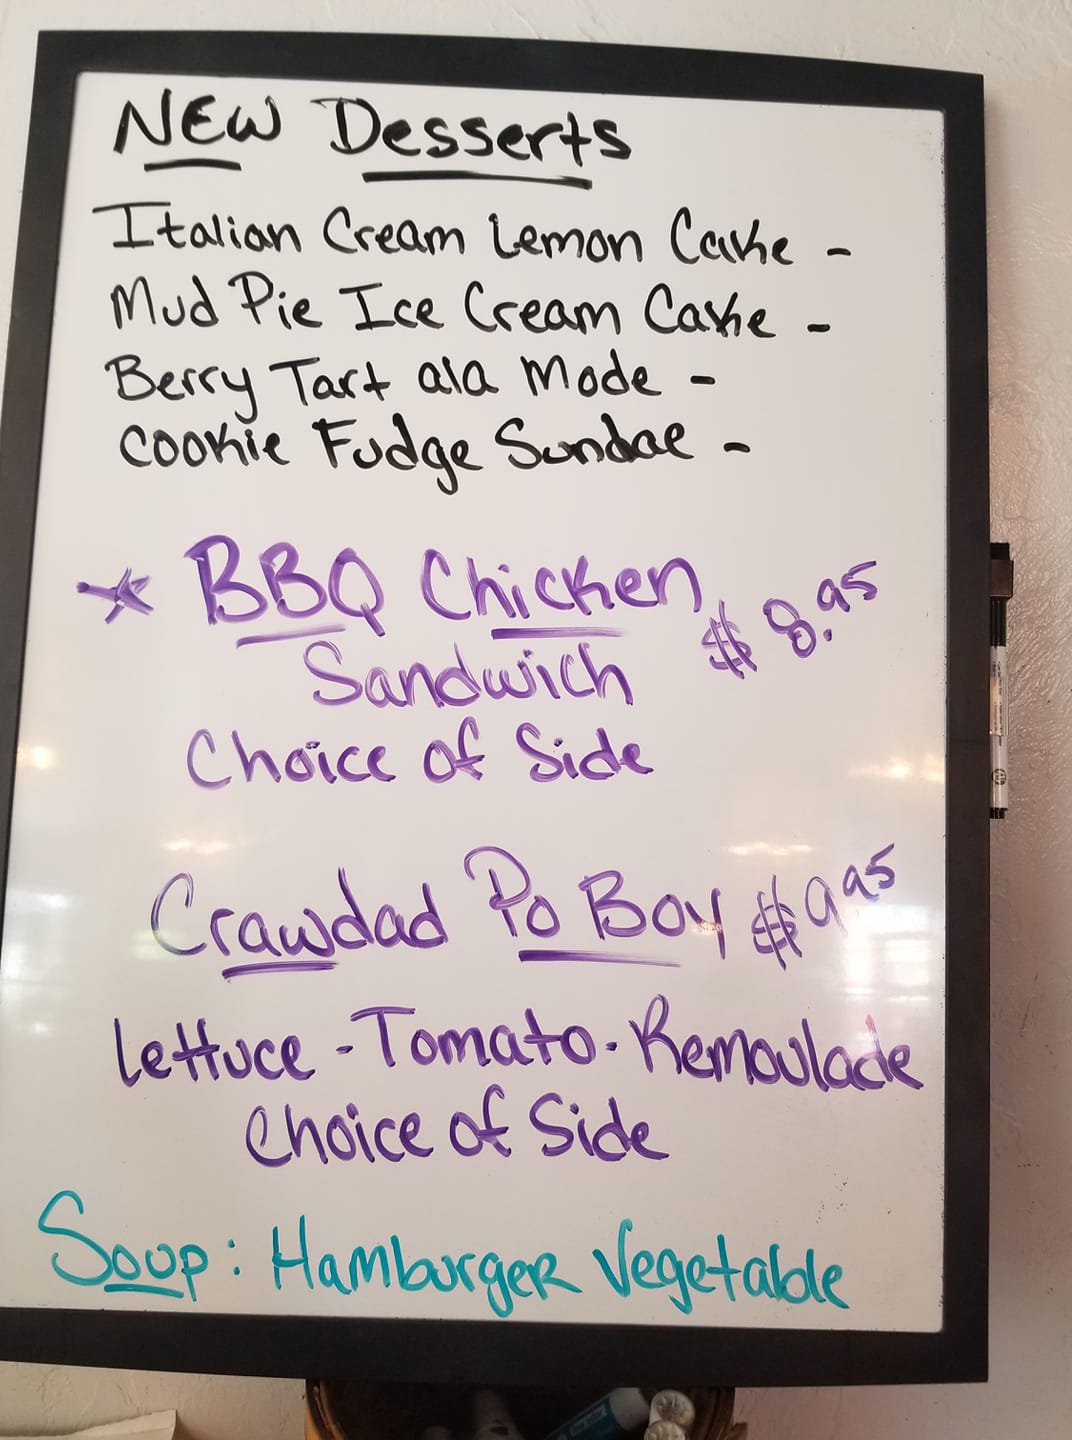 NEW Desserts
Italian Cream Lemon Cake -
Mud Pie Ice Cream Cake -
Berry Tart ala Mode -
Cookie Fudge Sundae -
* BBQ Chicken $8.95
Sandwich
Choice of Side
Crawdad Po Boy $9.95
Lettuce - Tomato - Remoulade
Choice of Side
Soup: Hamburger Vegetable